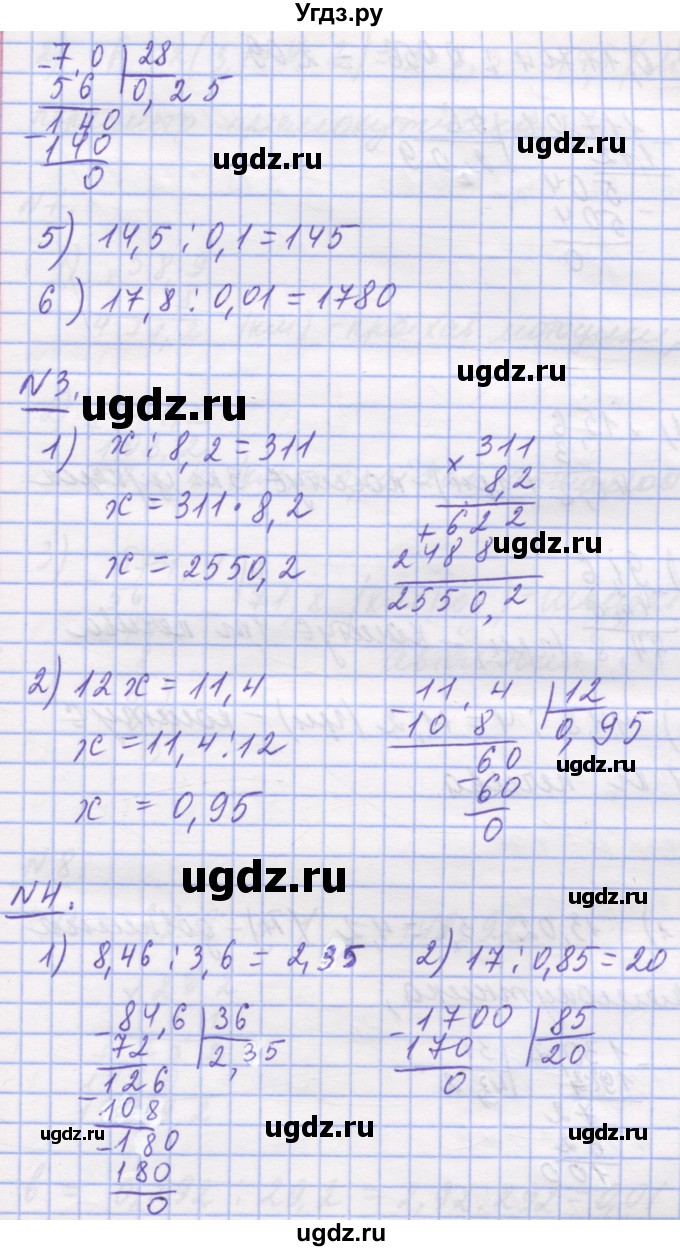 Угдз.ру
- 7,0 | 28
5 6 | 0,25
- 140
140
0
ugdz.ru
ugdz.ru
5) 14,5 : 0,1 = 145
6) 17,8 : 0,01 = 1780
ugdz.ru
N3.
ugdz.ru
1) x : 8,2 = 311
x = 311 · 8,2
x = 2550,2
× 311
8,2
+ 622
2488
2550,2
ugdz.ru
2) 12x = 11,4
x = 11,4 : 12
x = 0,95
- 11,4 | 12
10 8 | 0,95
- 60
60
0
ugdz.ru
ugdz.ru
ugdz.ru
N4.
1) 8,46 : 3,6 = 2,35
- 84,6 | 36
72 | 2,35
- 126
108
- 180
180
0
2) 17 : 0,85 = 20
- 1700 | 85
170 | 20
0
ugdz.ru
ugdz.ru
ugdz.ru
ugdz.ru